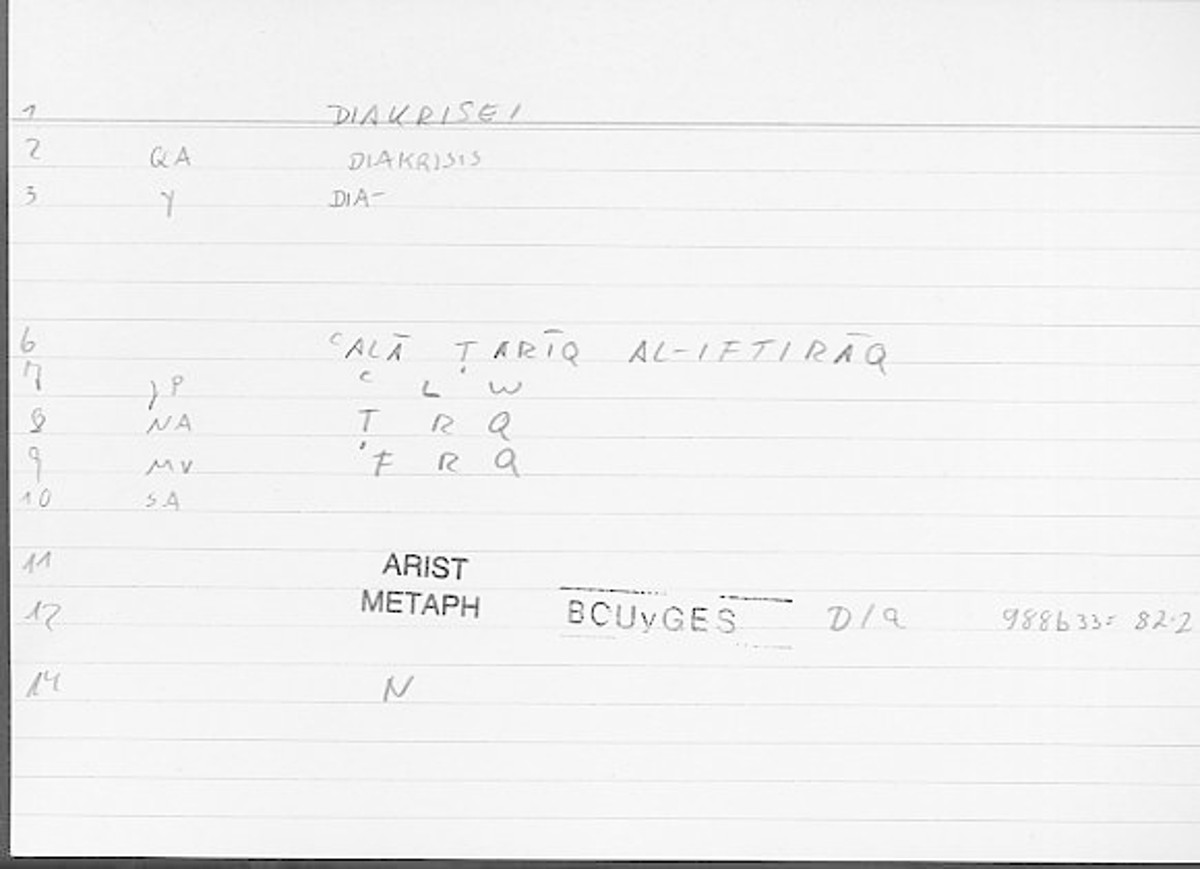 1 DIAKRISEI
2 QA DIAKRISIS
3 γ DIA-
6 ʿALĀ ṬARĪQ AL-IFTIRĀQ
7 γP ʿ L W
8 NA Ṭ R Q
9 MV F R Q
10 SA
11 ARIST
12 METAPH BOUyGES D/a 988b33= 82.2
14 N